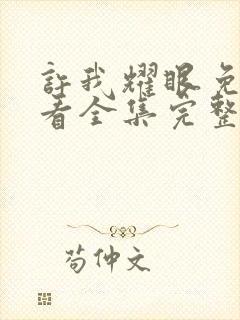 許我耀眼免
看全集完整
苟仲文